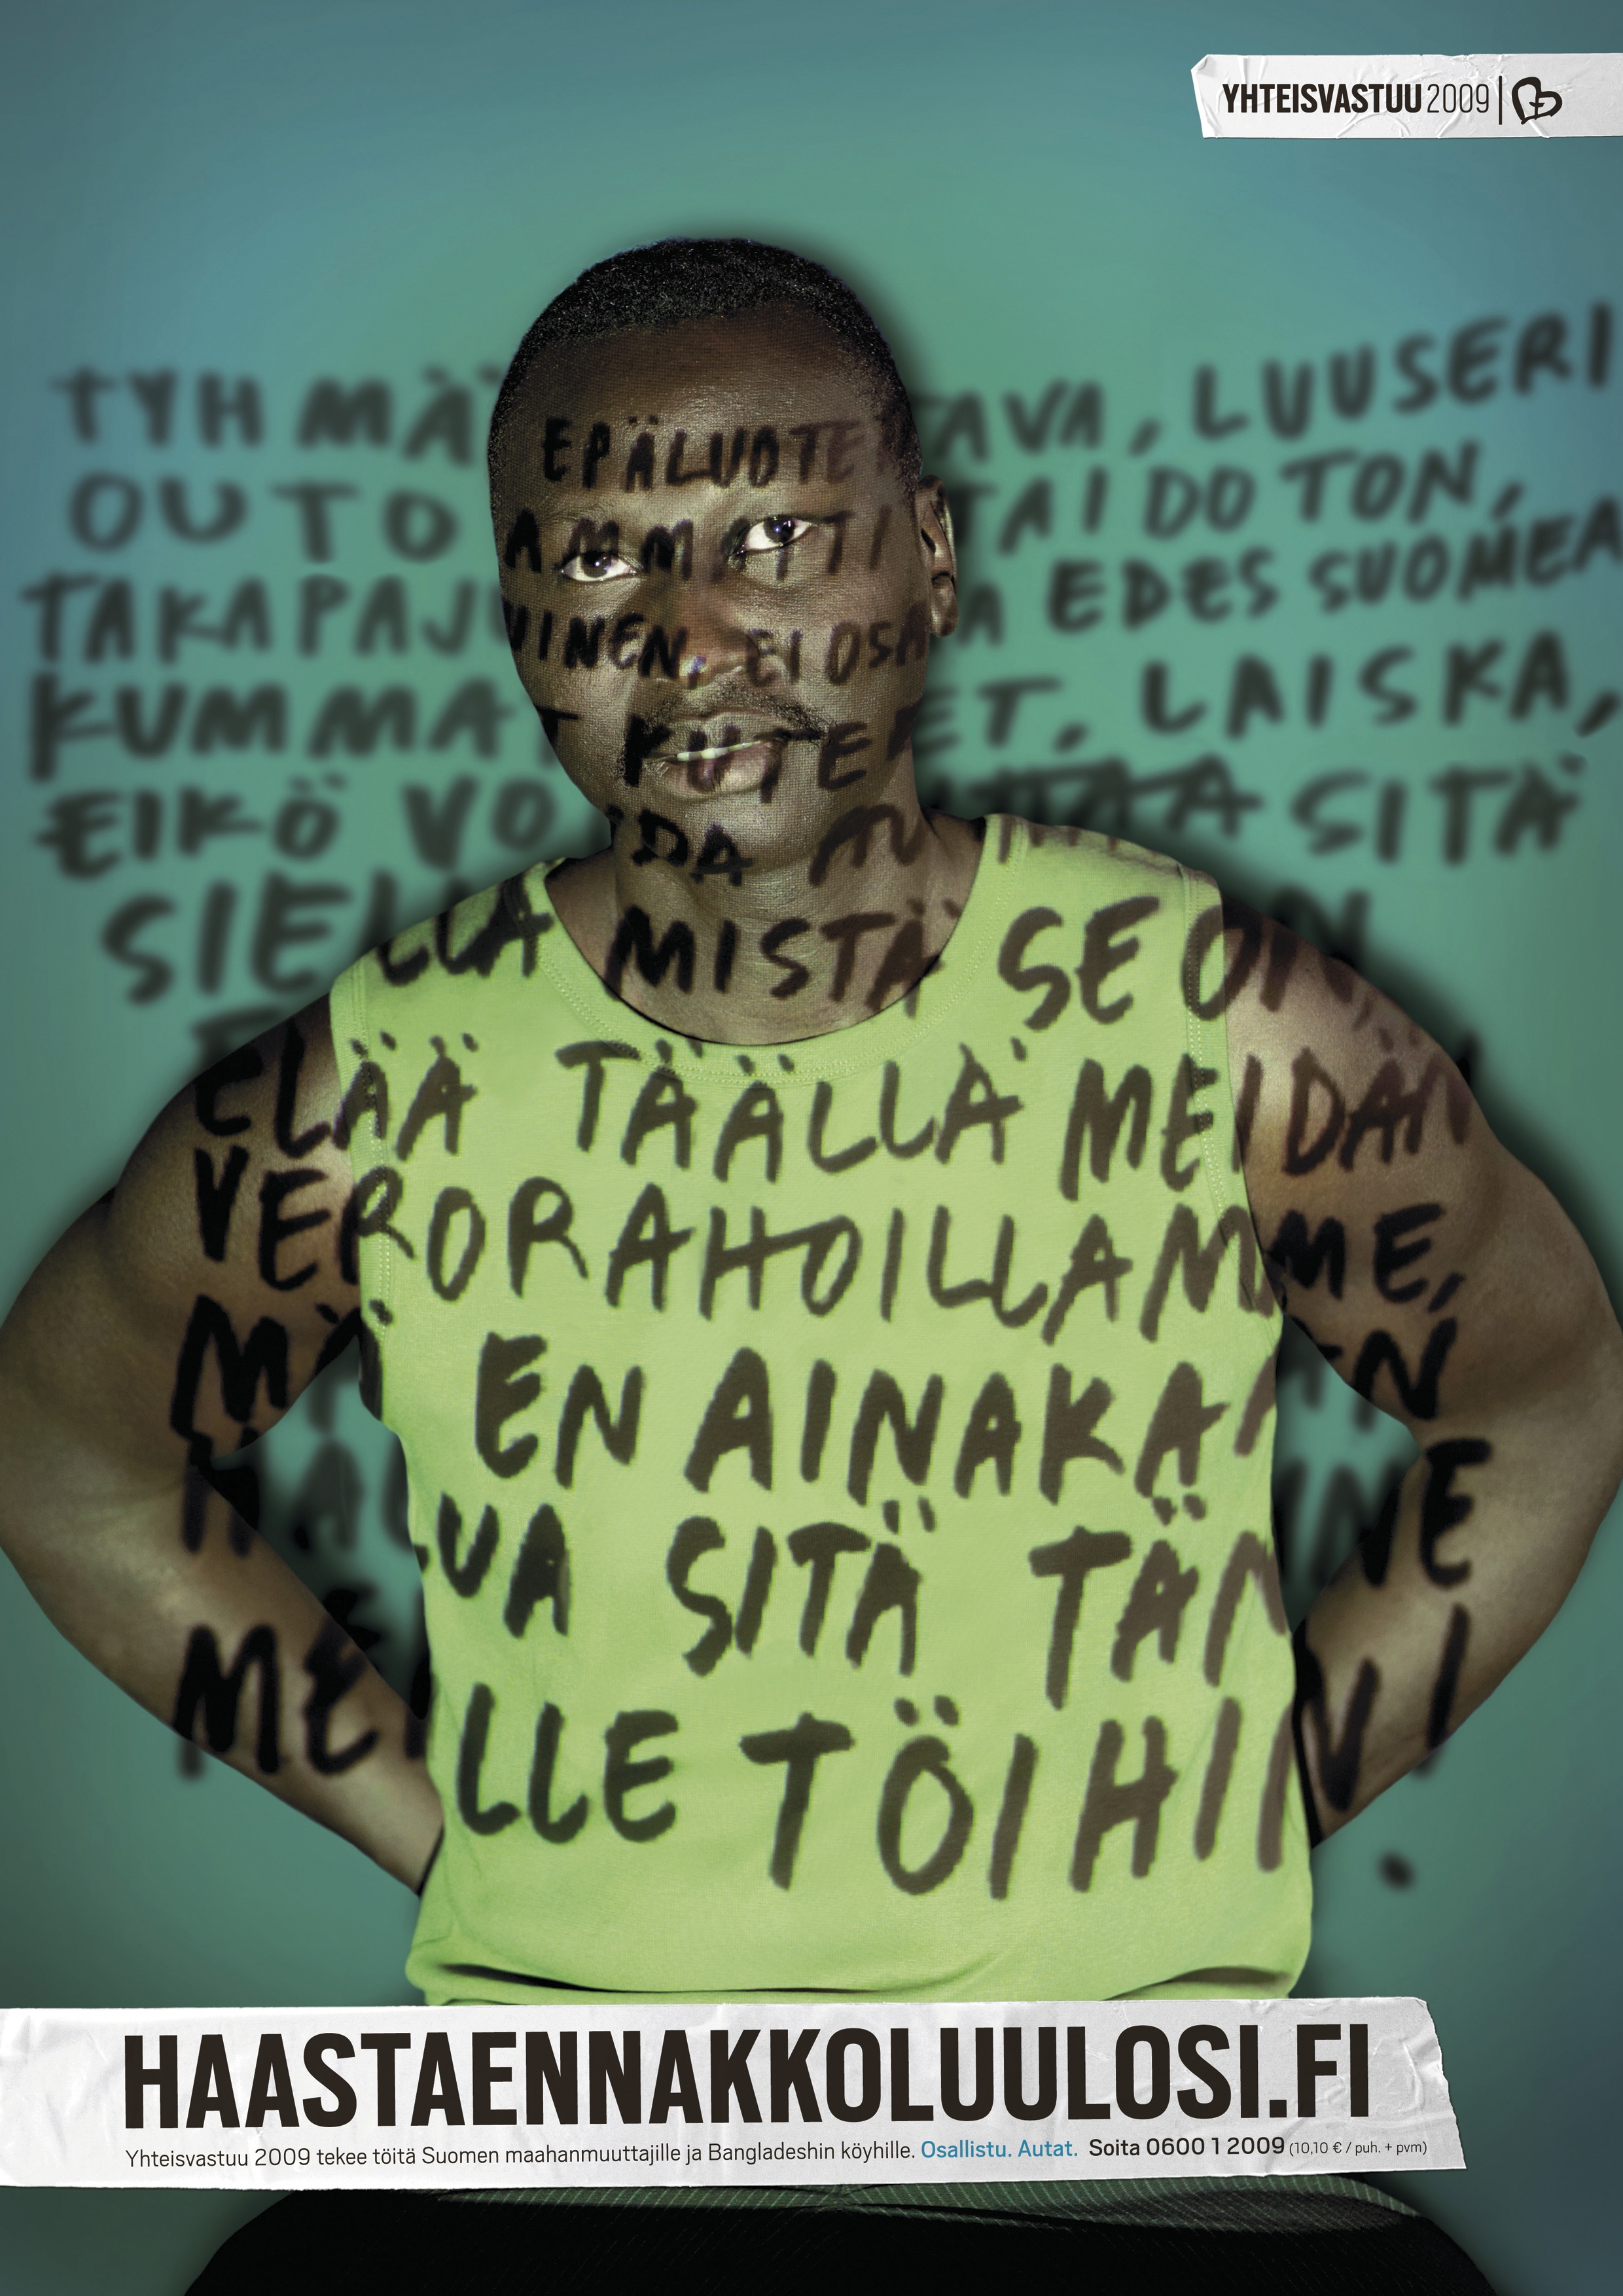 YHTEISVASTUU 2009
TYHMÄ EPÄLUOTETTAVA, LUUSERI
OUTO AMMATTITAIDOTON,
TAKAPAJUINEN, EI OSAA EDES SUOMEA
KUMMAT KUTEET, LAISKA,
EIKÖ VOIDA AUTTAA SITÄ
SIELLÄ MISTÄ SE ON,
ELÄÄ TÄÄLLÄ MEIDÄN
VERORAHOILLAMME,
MÄ EN AINAKAAN
HALUA SITÄ TÄNNE
MEILLE TÖIHIN!
HAASTAENNAKKOLUULOSI.FI
Yhteisvastuu 2009 tekee töitä Suomen maahanmuuttajille ja Bangladeshin köyhille. Osallistu. Autat. Soita 0600 1 2009 (10,10 € / puh. + pvm)